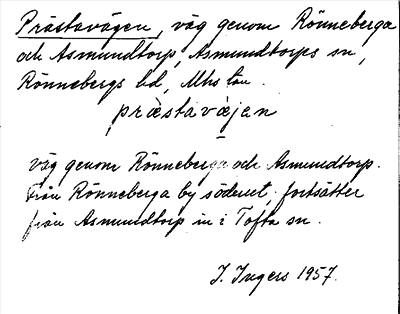 Prästavägen, väg genom Rönneberga
och Asmundtorp, Asmundtorps sn,
Rönnebergs hd, Mhs län.
præ̀stavæjan
väg genom Rönneberga och Asmundtorp.
Från Rönneberga by söderut; fortsätter
från Asmundtorp in i Tofta sn.
I. Ingers 1957.